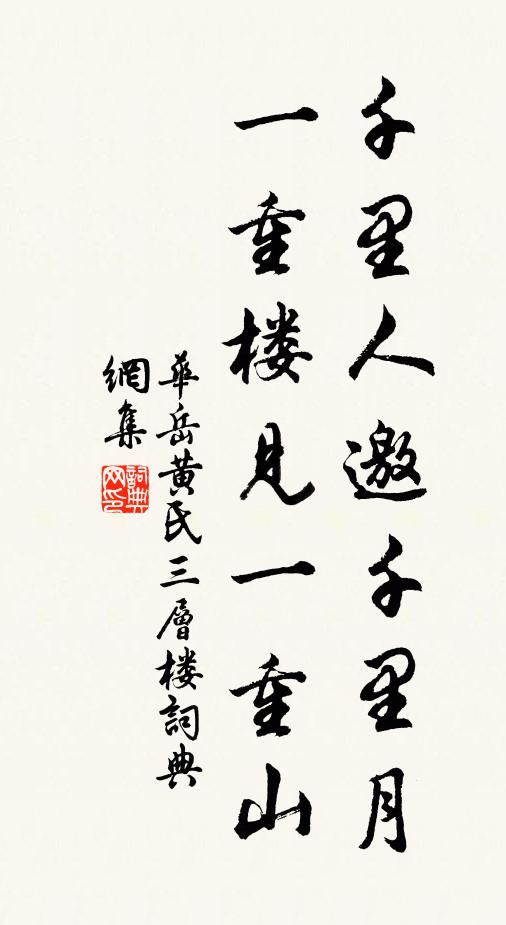 千里人邀千里月
一重楼見一重山
華岳黄民三層楼詞典
網集
詞典
网印